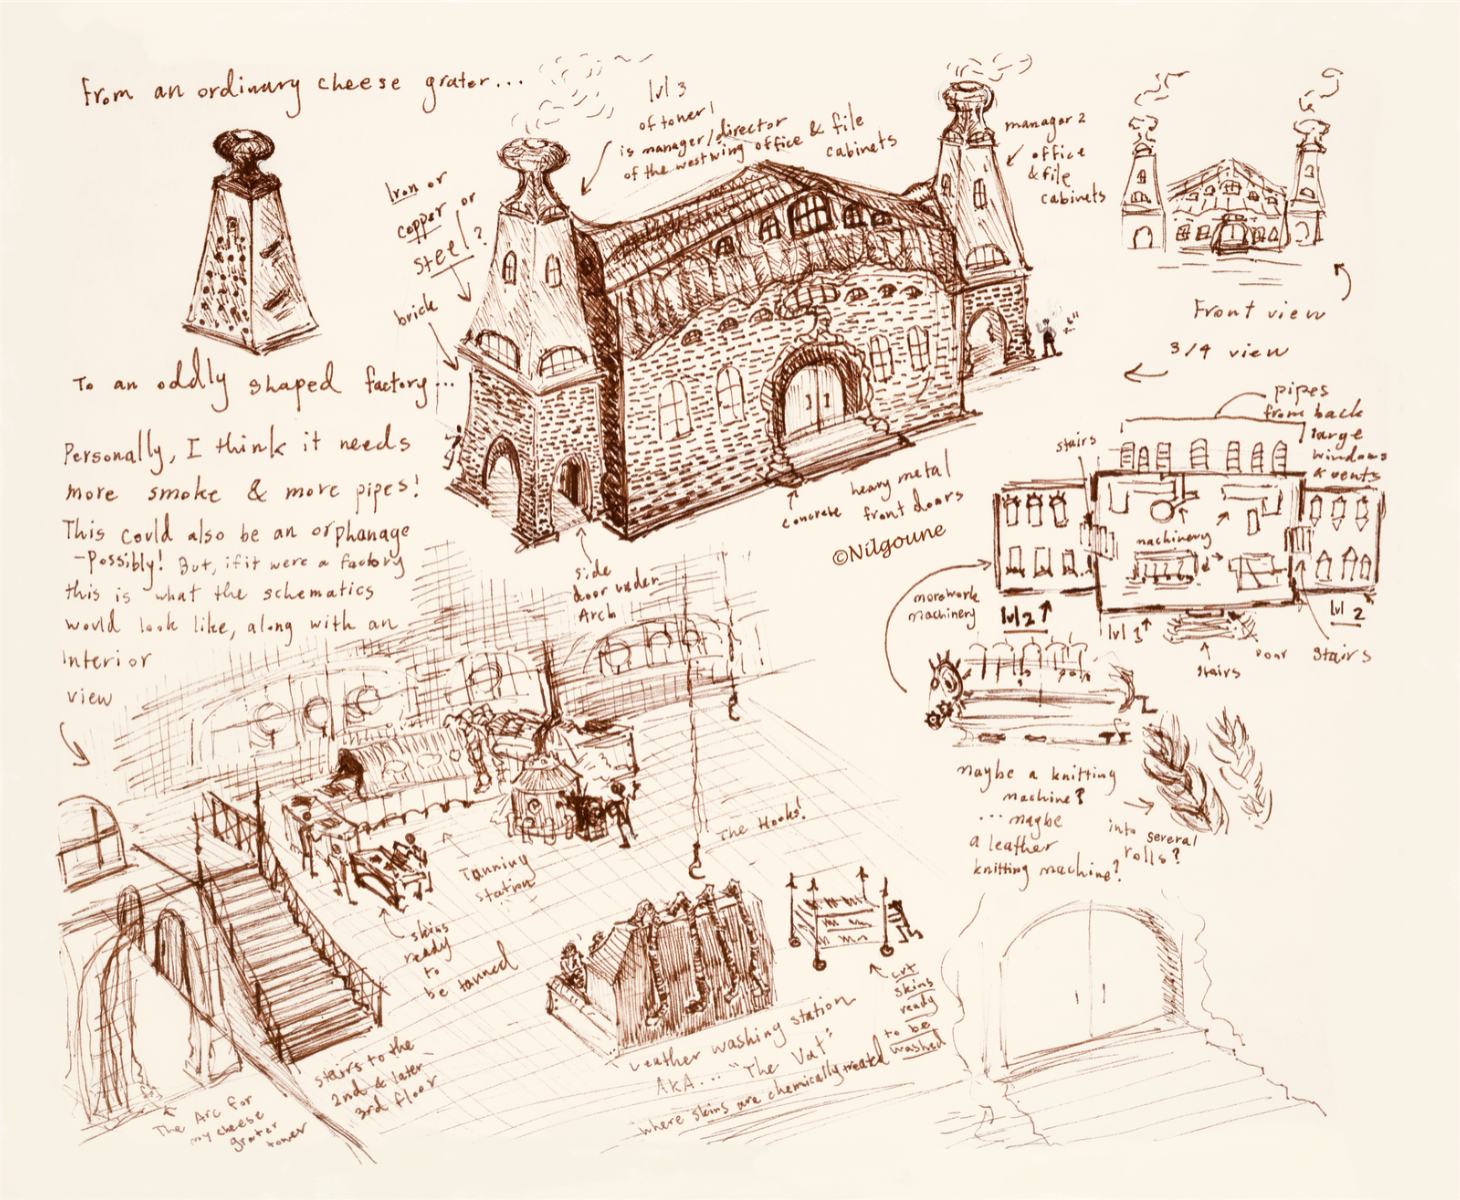 From an ordinary cheese grater...
To an oddly shaped factory...
Personally, I think it needs
more smoke & more pipes!
This could also be an orphanage
- Possibly! But, if it were a factory
this is what the schematics
would look like, along with an
Interior
view
lvl 3
of tower 1
is manager/director
of the west wing office & file
cabinets
Iron or
copper or
steel?
brick
manager 2
office
& file
cabinets
Front view
3/4 view
concrete
heavy metal
front doors
©Nilgoune
side
door under
Arch
pipes
from back
large
windows
& vents
stairs
machinery
more work
machinery
lvl 2
lvl 1
stairs
Door
stairs
lvl 2
Maybe a knitting
machine?
... maybe
a leather
knitting machine?
into several
rolls?
The Hooks!
Tanning
station
skins
ready
to
be tanned
stairs to the
2nd & later
3rd floor
The Arc for
my cheese
grater
tower
Leather washing station
AKA... "The Vat"
where skins are chemically treated
skins
ready
to be
washed